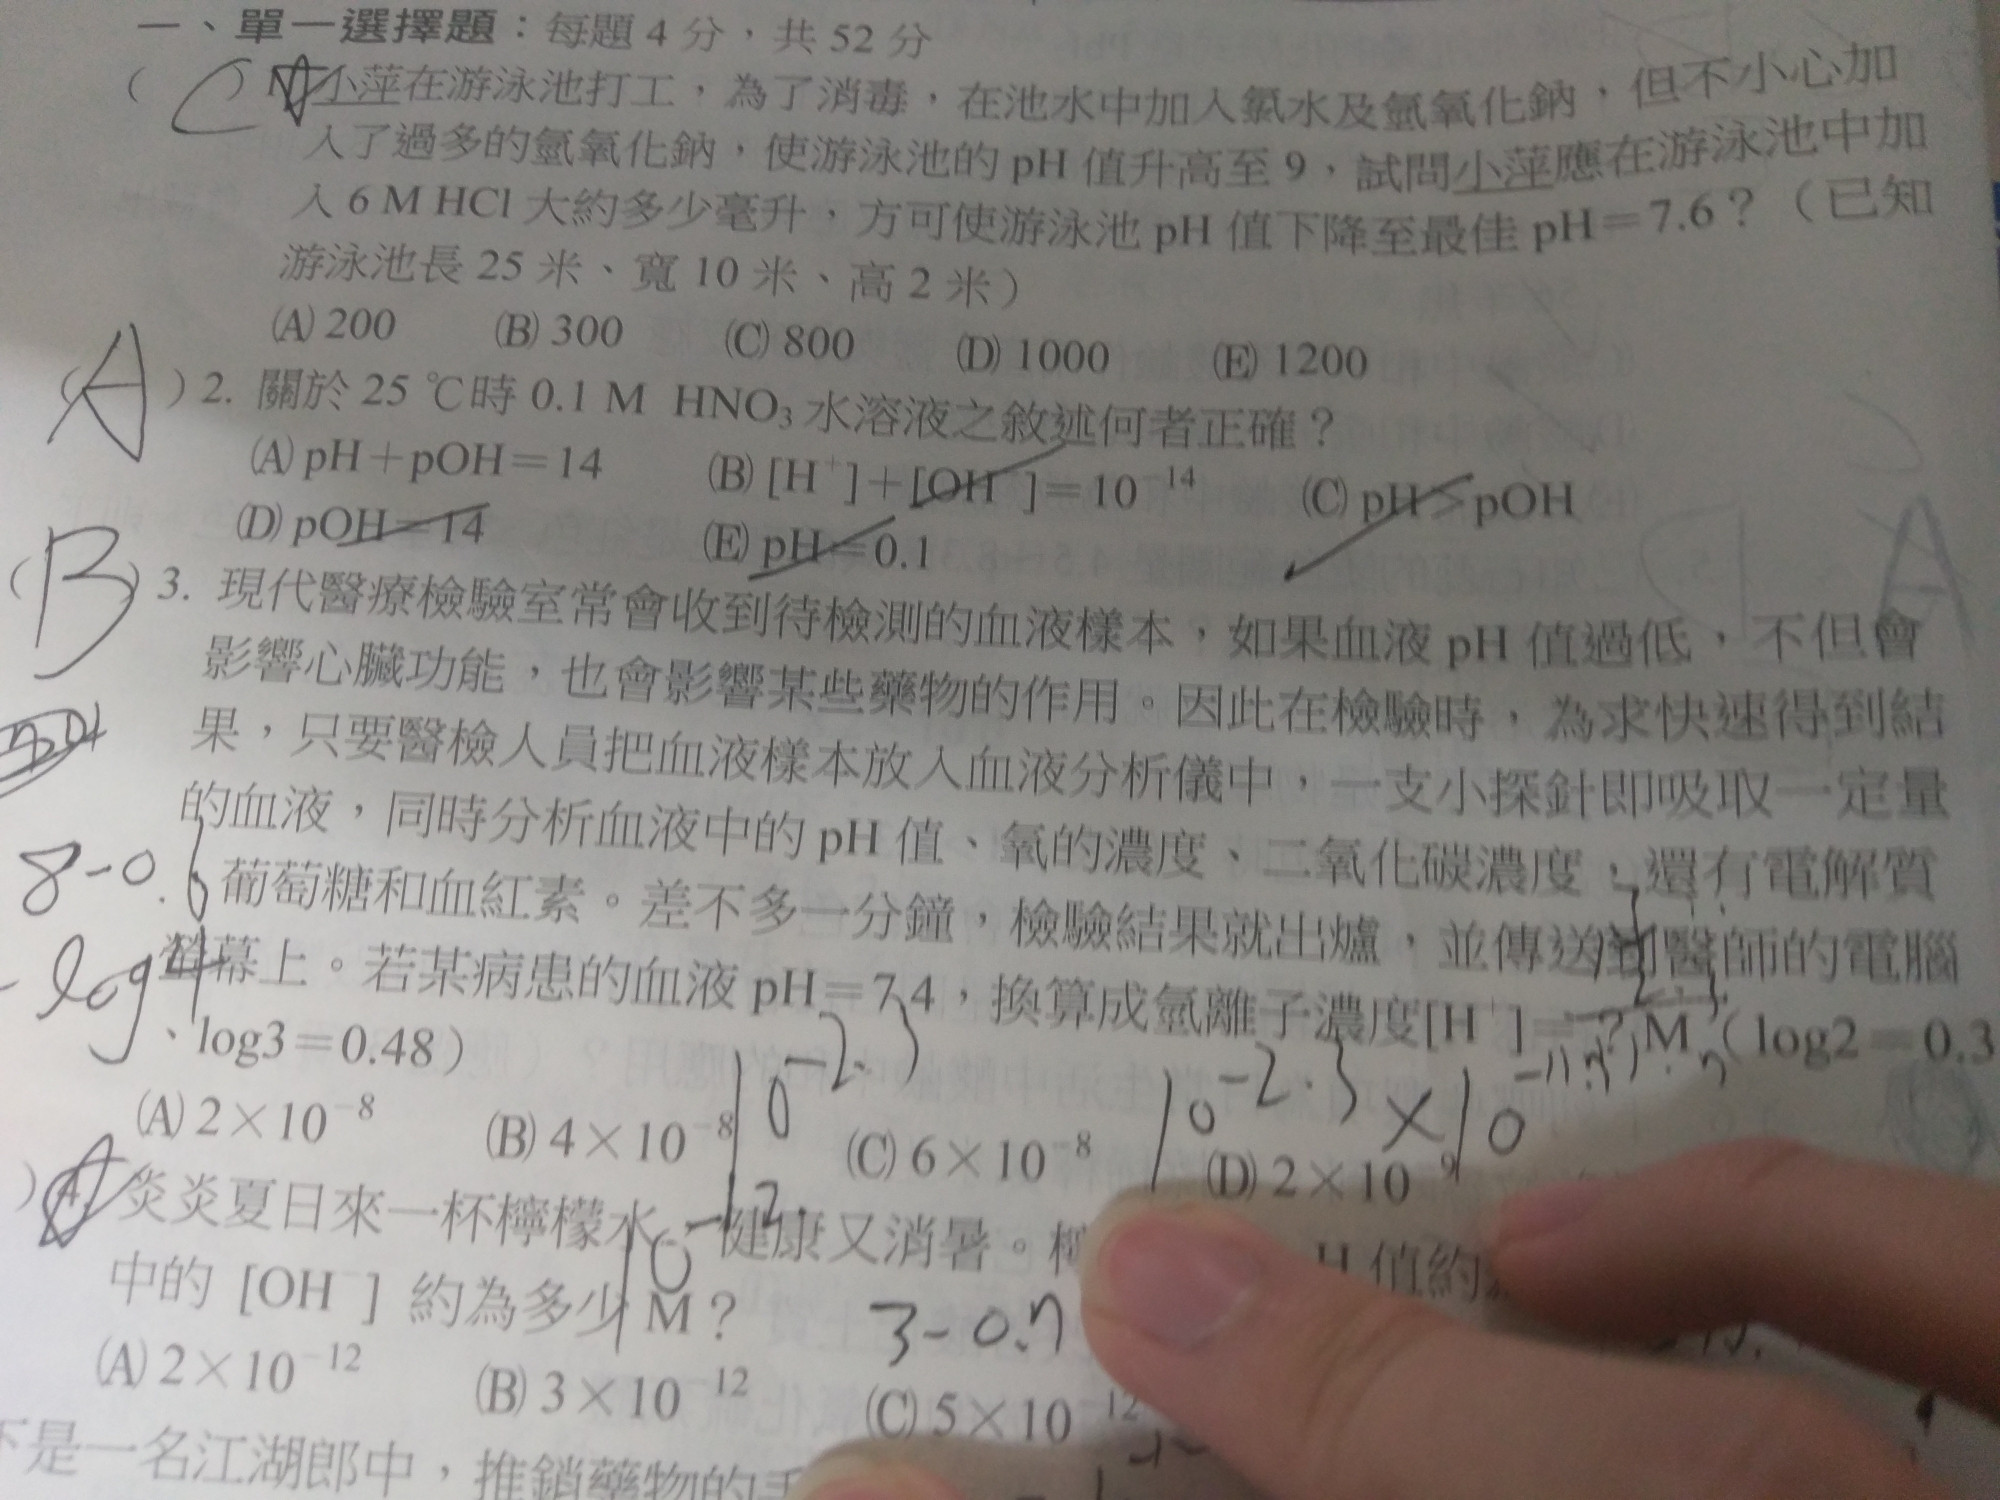 一、單一選擇題：每題 4 分，共 52 分
( C ) 小萍在游泳池打工，為了消毒，在池水中加入氯水及氫氧化鈉，但不小心加
入了過多的氫氧化鈉，使游泳池的 pH 值升高至 9，試問小萍應在游泳池中加
入 6 M HCl 大約多少毫升，方可使游泳池 pH 值下降至最佳 pH＝7.6？（已知
游泳池長 25 米、寬 10 米、高 2 米）
(A) 200 (B) 300 (C) 800 (D) 1000 (E) 1200
( A ) 2. 關於 25 ℃時 0.1 M HNO₃ 水溶液之敘述何者正確？
(A) pH＋pOH＝14 (B) [H⁺]＋[OH⁻]＝10⁻¹⁴ (C) pH＞pOH
(D) pOH＝14 (E) pH＝0.1
( B ) 3. 現代醫療檢驗室常會收到待檢測的血液樣本，如果血液 pH 值過低，不但會
影響心臟功能，也會影響某些藥物的作用。因此在檢驗時，為求快速得到結
果，只要醫檢人員把血液樣本放入血液分析儀中，一支小探針即吸取一定量
的血液，同時分析血液中的 pH 值、氧的濃度、二氧化碳濃度，還有電解質
8-0.6
葡萄糖和血紅素。差不多一分鐘，檢驗結果就出爐，並傳送到醫師的電腦
-log4
螢幕上。若某病患的血液 pH＝7.4，換算成氫離子濃度[H⁺]＝？M（log2＝0.3
、log3＝0.48）
10⁻²·³
10⁻²·³×10
(A) 2×10⁻⁸ (B) 4×10⁻⁸ (C) 6×10⁻⁸ (D) 2×10⁻⁹
) 4. 炎炎夏日來一杯檸檬水，健康又消暑。檸 H 值約
中的 [OH⁻] 約為多少 M？
3-0.7
(A) 2×10⁻¹² (B) 3×10⁻¹² (C) 5×10⁻¹²
下是一名江湖郎中，推銷藥物的手